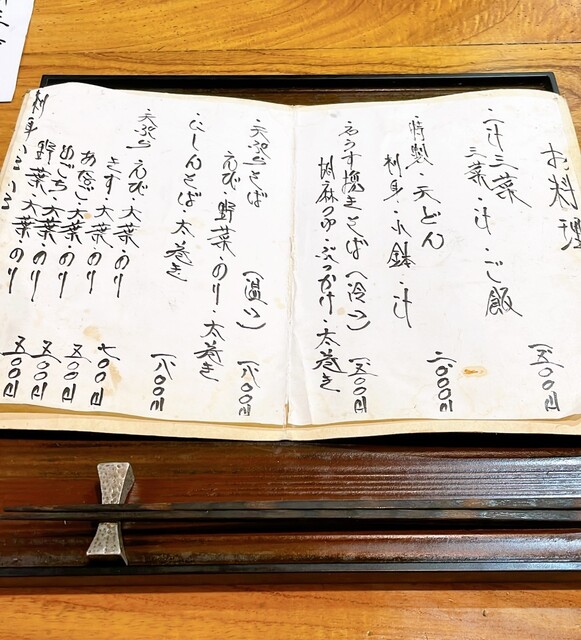 お料理
一汁三菜 一五〇〇円
三菜・汁・ご飯
特製・天どん 二、〇〇〇円
刺身・小鉢・汁
石うす挽きそば(冷) 一五〇〇円
胡麻つゆ・ぶっかけ・太巻き
天ぷらそば(温) 一八〇〇円
えび・野菜・のり・太巻き
にしんそば・太巻き 一八〇〇円
天ぷら えび・大葉・のり 七〇〇円
きす・大葉・のり 五〇〇円
あなご・大葉・のり 五〇〇円
めごち・大葉・のり 五〇〇円
野菜・大葉・のり
刺身いろいろ